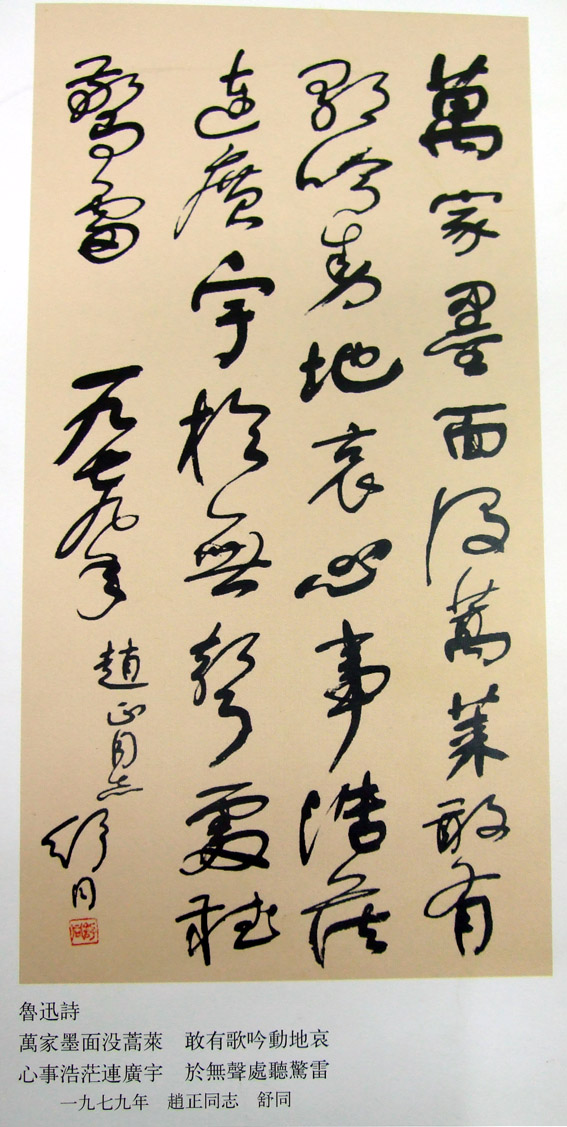 萬家墨面没蒿萊敢有
歌吟動地哀心事浩茫
連廣宇於無聲處聽
驚雷
一九七九年
趙正同志
舒同
魯迅詩
萬家墨面没蒿萊　敢有歌吟動地哀
心事浩茫連廣宇　於無聲處聽驚雷
一九七九年　趙正同志　舒同